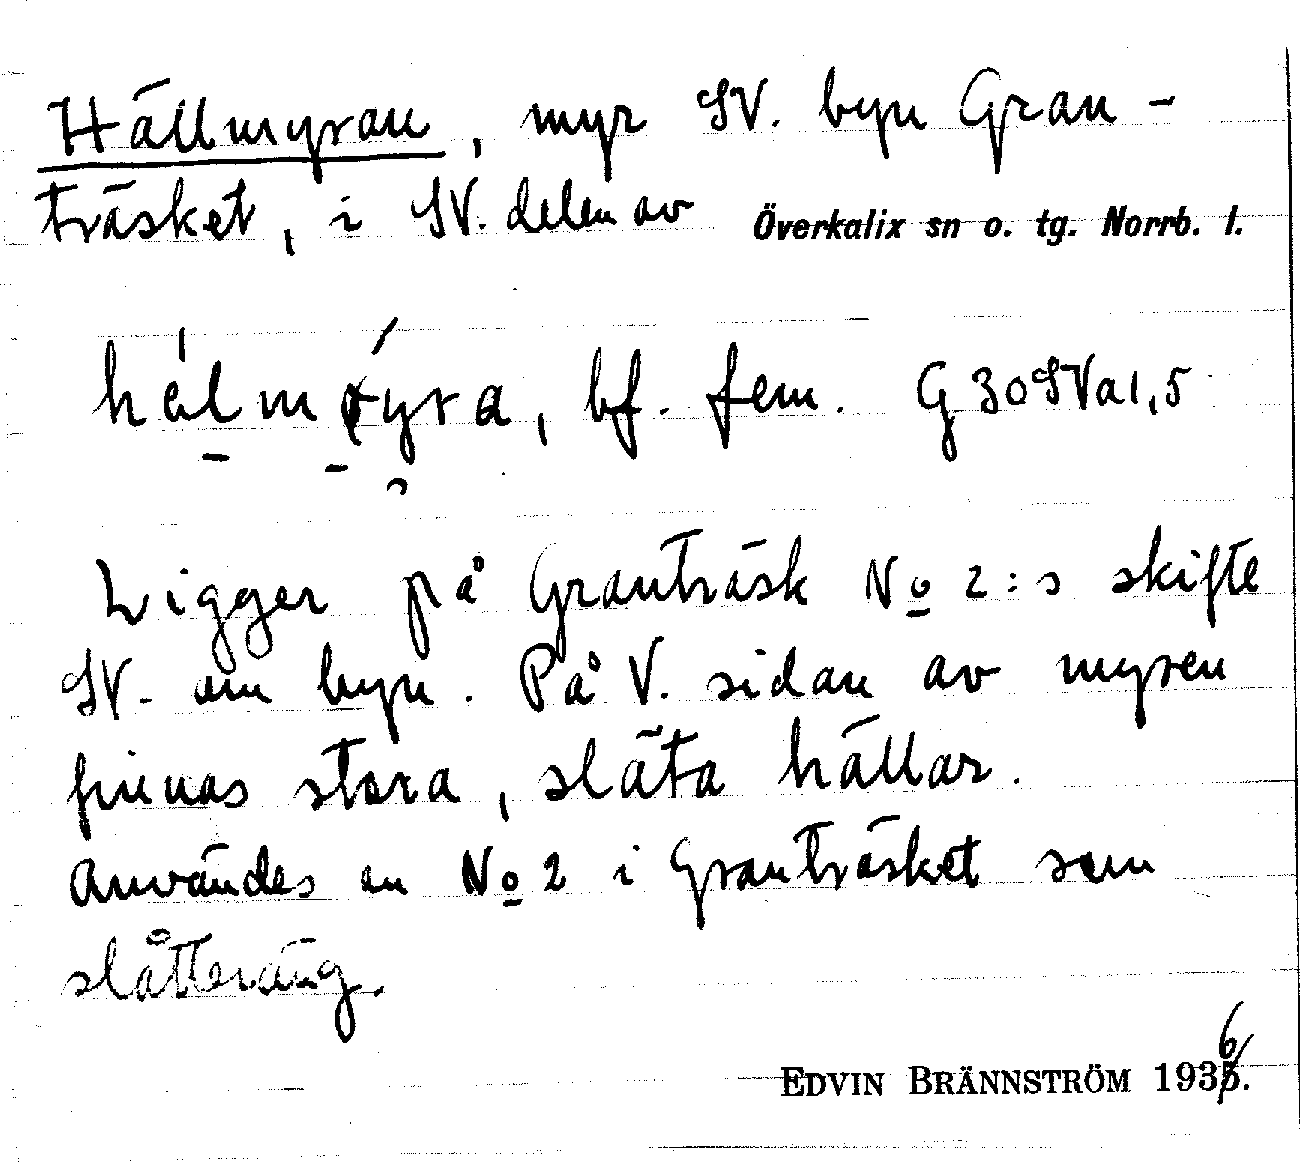 Hällmyran, myr SV. byn Gran-
träsket, i SV. delen av Överkalix sn o. tg. Norrb. l.
bf. fem. G 30 SVa1,5
Ligger på Granträsk No 2:s skifte
SV. om byn. På V. sidan av myren
finnas stora, släta hällar.
Användes av No 2 i Granträsket som
slåtteräng.
EDVIN BRÄNNSTRÖM 1936.